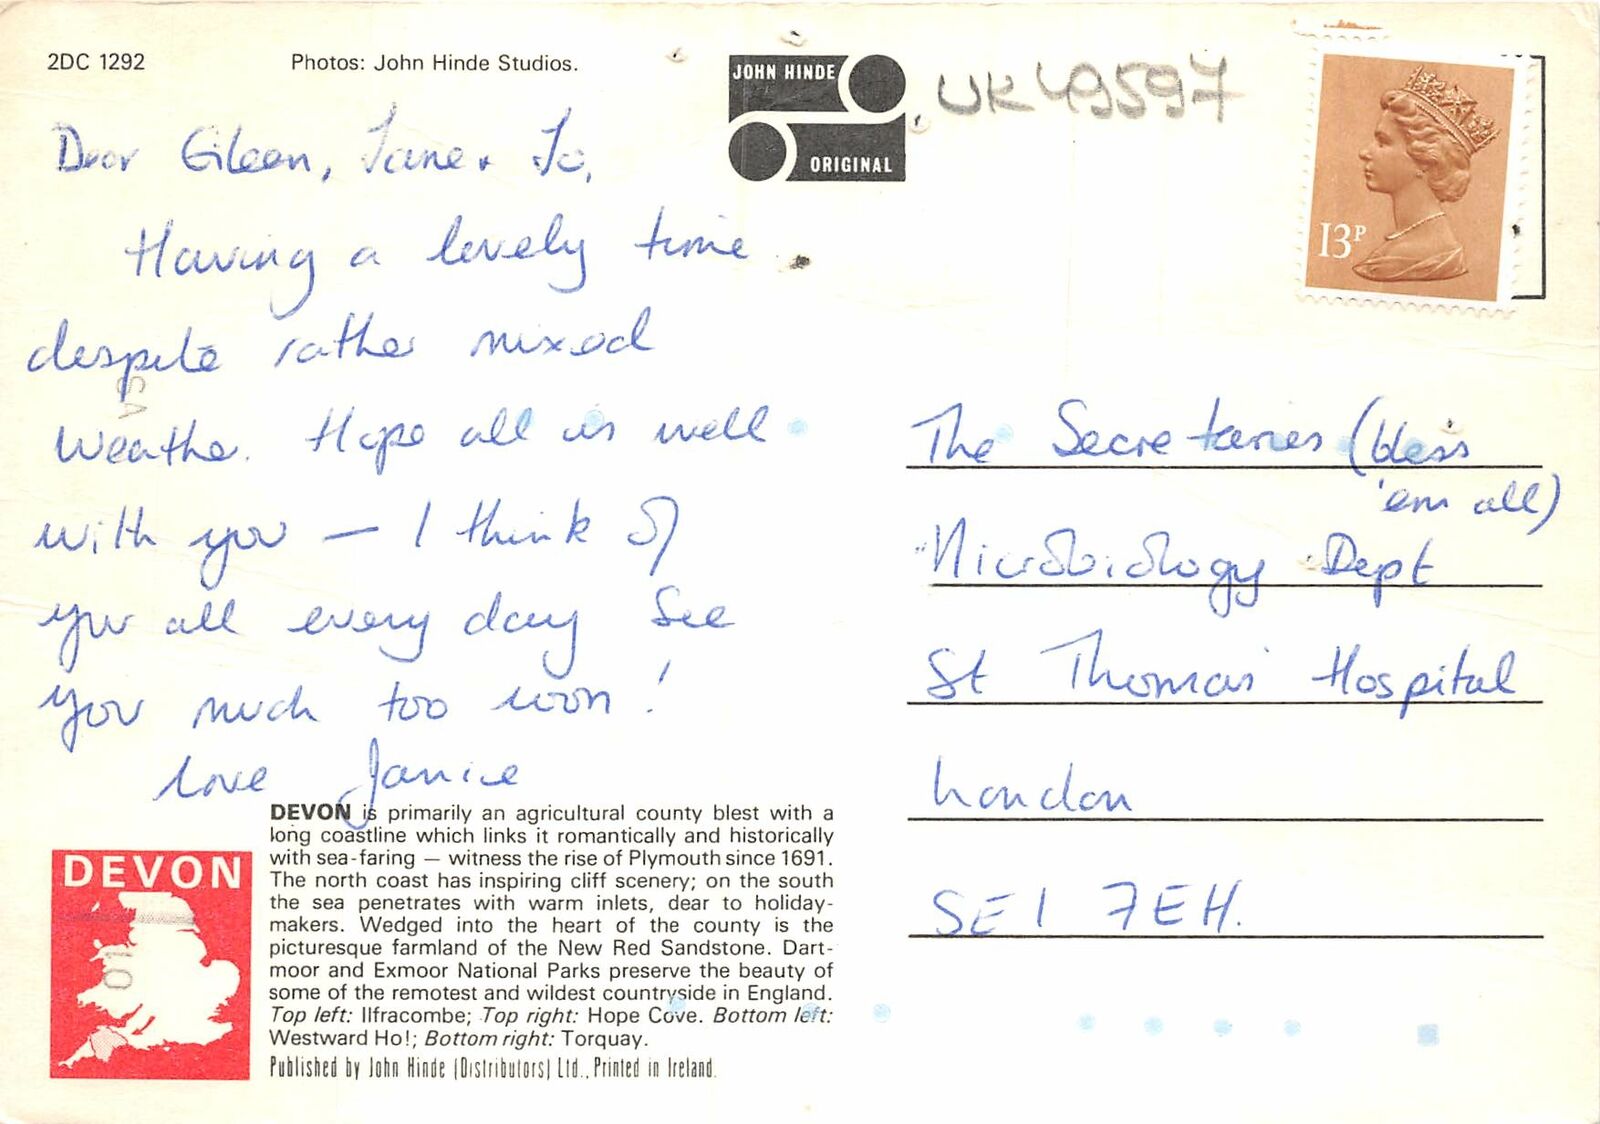 2DC 1292
Photos: John Hinde Studios.
JOHN HINDE
ORIGINAL
UK49597
13P
Dear Eileen, Jane + Jo,
Having a lovely time
despite rather mixed
weather. Hope all is well
with you — I think of
you all every day See
you much too soon!
Love Janice
The Secretaries (bless
'em all)
Microbiology Dept
St Thomas' Hospital
London
SE1 7EH.
DEVON
DEVON is primarily an agricultural county blest with a
long coastline which links it romantically and historically
with sea-faring — witness the rise of Plymouth since 1691.
The north coast has inspiring cliff scenery; on the south
the sea penetrates with warm inlets, dear to holiday-
makers. Wedged into the heart of the county is the
picturesque farmland of the New Red Sandstone. Dart-
moor and Exmoor National Parks preserve the beauty of
some of the remotest and wildest countryside in England.
Top left: Ilfracombe; Top right: Hope Cove. Bottom left:
Westward Ho!; Bottom right: Torquay.
Published by John Hinde (Distributors) Ltd., Printed in Ireland.